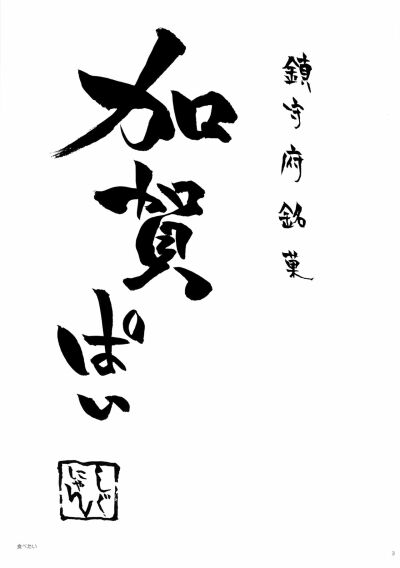 鎮守府銘菓
加賀ぱい
しぐ
にゃん
食べたい